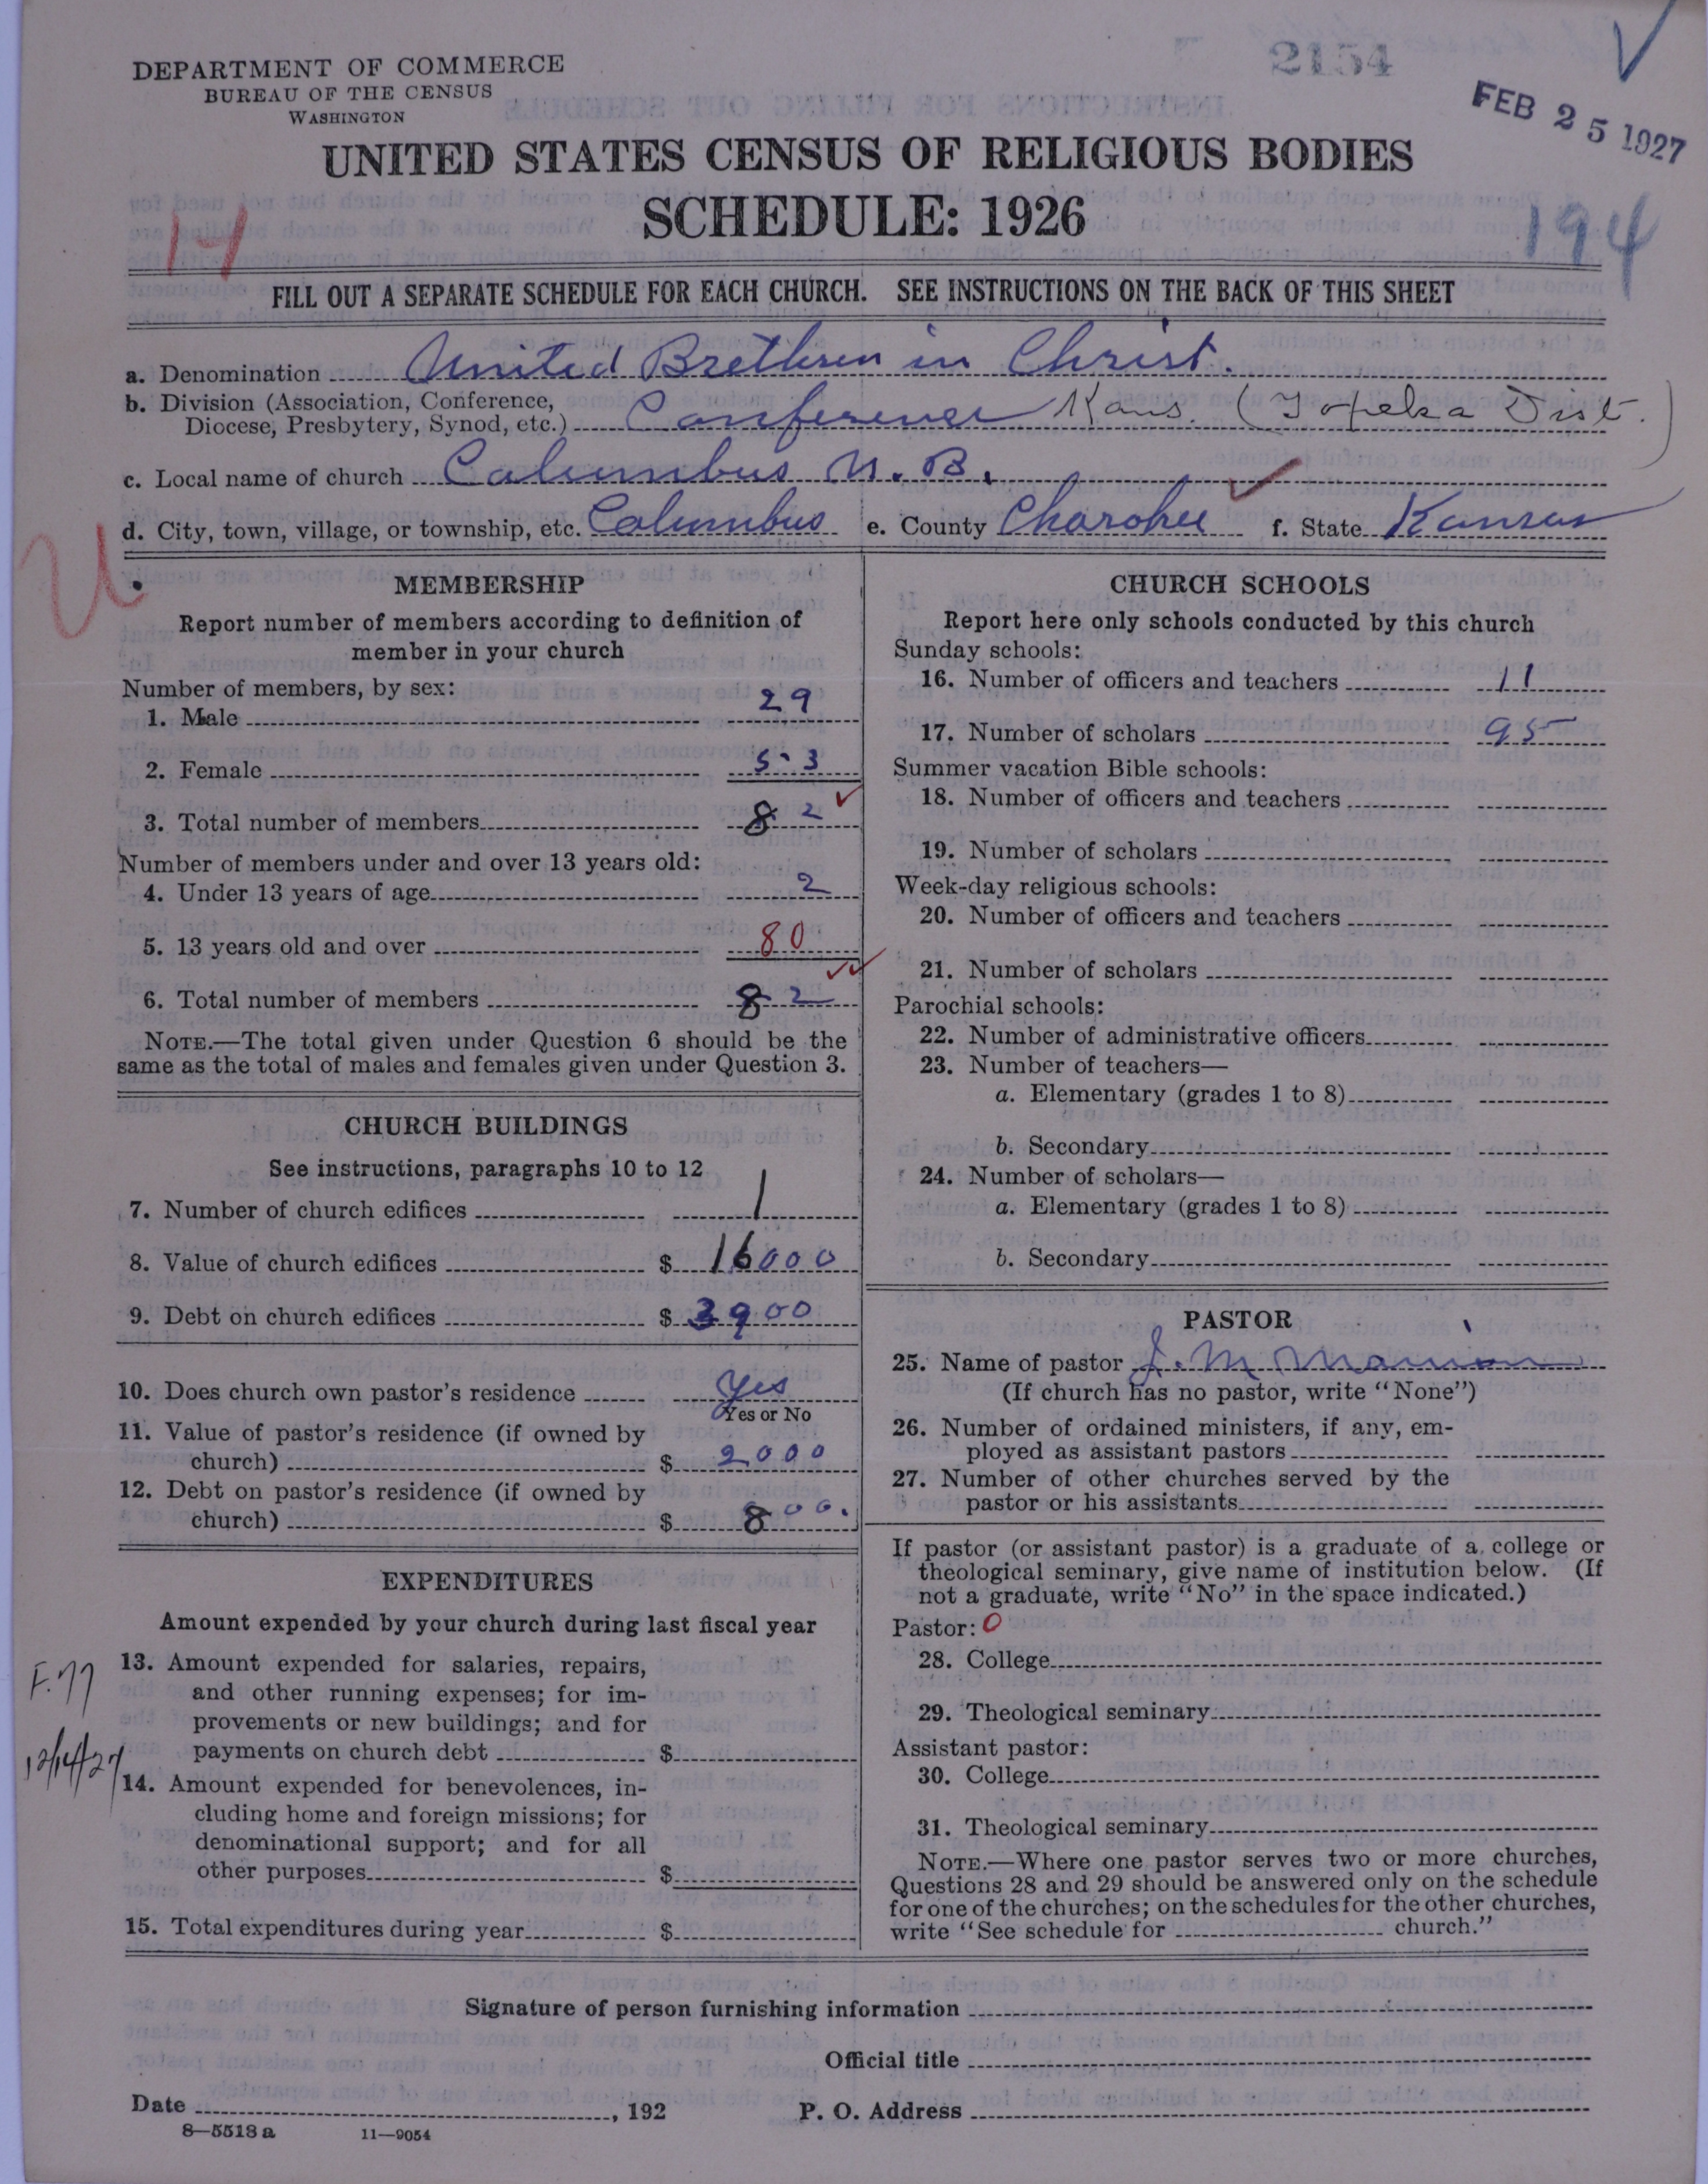 2154
FEB 25 1927
DEPARTMENT OF COMMERCE
BUREAU OF THE CENSUS
WASHINGTON
UNITED STATES CENSUS OF RELIGIOUS BODIES
SCHEDULE: 1926
14
194
FILL OUT A SEPARATE SCHEDULE FOR EACH CHURCH. SEE INSTRUCTIONS ON THE BACK OF THIS SHEET
a. Denomination United Brethren in Christ.
b. Division (Association, Conference,
Diocese, Presbytery, Synod, etc.) Conference Kans. (Topeka Dist.)
c. Local name of church Columbus U. B.
d. City, town, village, or township, etc. Columbus e. County Charokee f. State Kansas
U
MEMBERSHIP
Report number of members according to definition of
member in your church
Number of members, by sex:
1. Male 29
2. Female 53
3. Total number of members 82
Number of members under and over 13 years old:
4. Under 13 years of age 2
5. 13 years old and over 80
6. Total number of members 82
NOTE.—The total given under Question 6 should be the
same as the total of males and females given under Question 3.
CHURCH BUILDINGS
See instructions, paragraphs 10 to 12
7. Number of church edifices 1
8. Value of church edifices $ 16000
9. Debt on church edifices $ 3900
10. Does church own pastor's residence Yes
Yes or No
11. Value of pastor's residence (if owned by
church) $ 2000
12. Debt on pastor's residence (if owned by
church) $ 800.
EXPENDITURES
Amount expended by your church during last fiscal year
F.77
12/14/27
13. Amount expended for salaries, repairs,
and other running expenses; for im-
provements or new buildings; and for
payments on church debt $
14. Amount expended for benevolences, in-
cluding home and foreign missions; for
denominational support; and for all
other purposes $
15. Total expenditures during year $
CHURCH SCHOOLS
Report here only schools conducted by this church
Sunday schools:
16. Number of officers and teachers 11
17. Number of scholars 95
Summer vacation Bible schools:
18. Number of officers and teachers
19. Number of scholars
Week-day religious schools:
20. Number of officers and teachers
21. Number of scholars
Parochial schools:
22. Number of administrative officers
23. Number of teachers—
a. Elementary (grades 1 to 8)
b. Secondary
24. Number of scholars—
a. Elementary (grades 1 to 8)
b. Secondary
PASTOR
25. Name of pastor J. M.
(If church has no pastor, write "None")
26. Number of ordained ministers, if any, em-
ployed as assistant pastors
27. Number of other churches served by the
pastor or his assistants
If pastor (or assistant pastor) is a graduate of a college or
theological seminary, give name of institution below. (If
not a graduate, write "No" in the space indicated.)
Pastor: 0
28. College
29. Theological seminary
Assistant pastor:
30. College
31. Theological seminary
NOTE.—Where one pastor serves two or more churches,
Questions 28 and 29 should be answered only on the schedule
for one of the churches; on the schedules for the other churches,
write "See schedule for church."
Signature of person furnishing information
Official title
Date , 192 P. O. Address
8—5518 a 11—9054